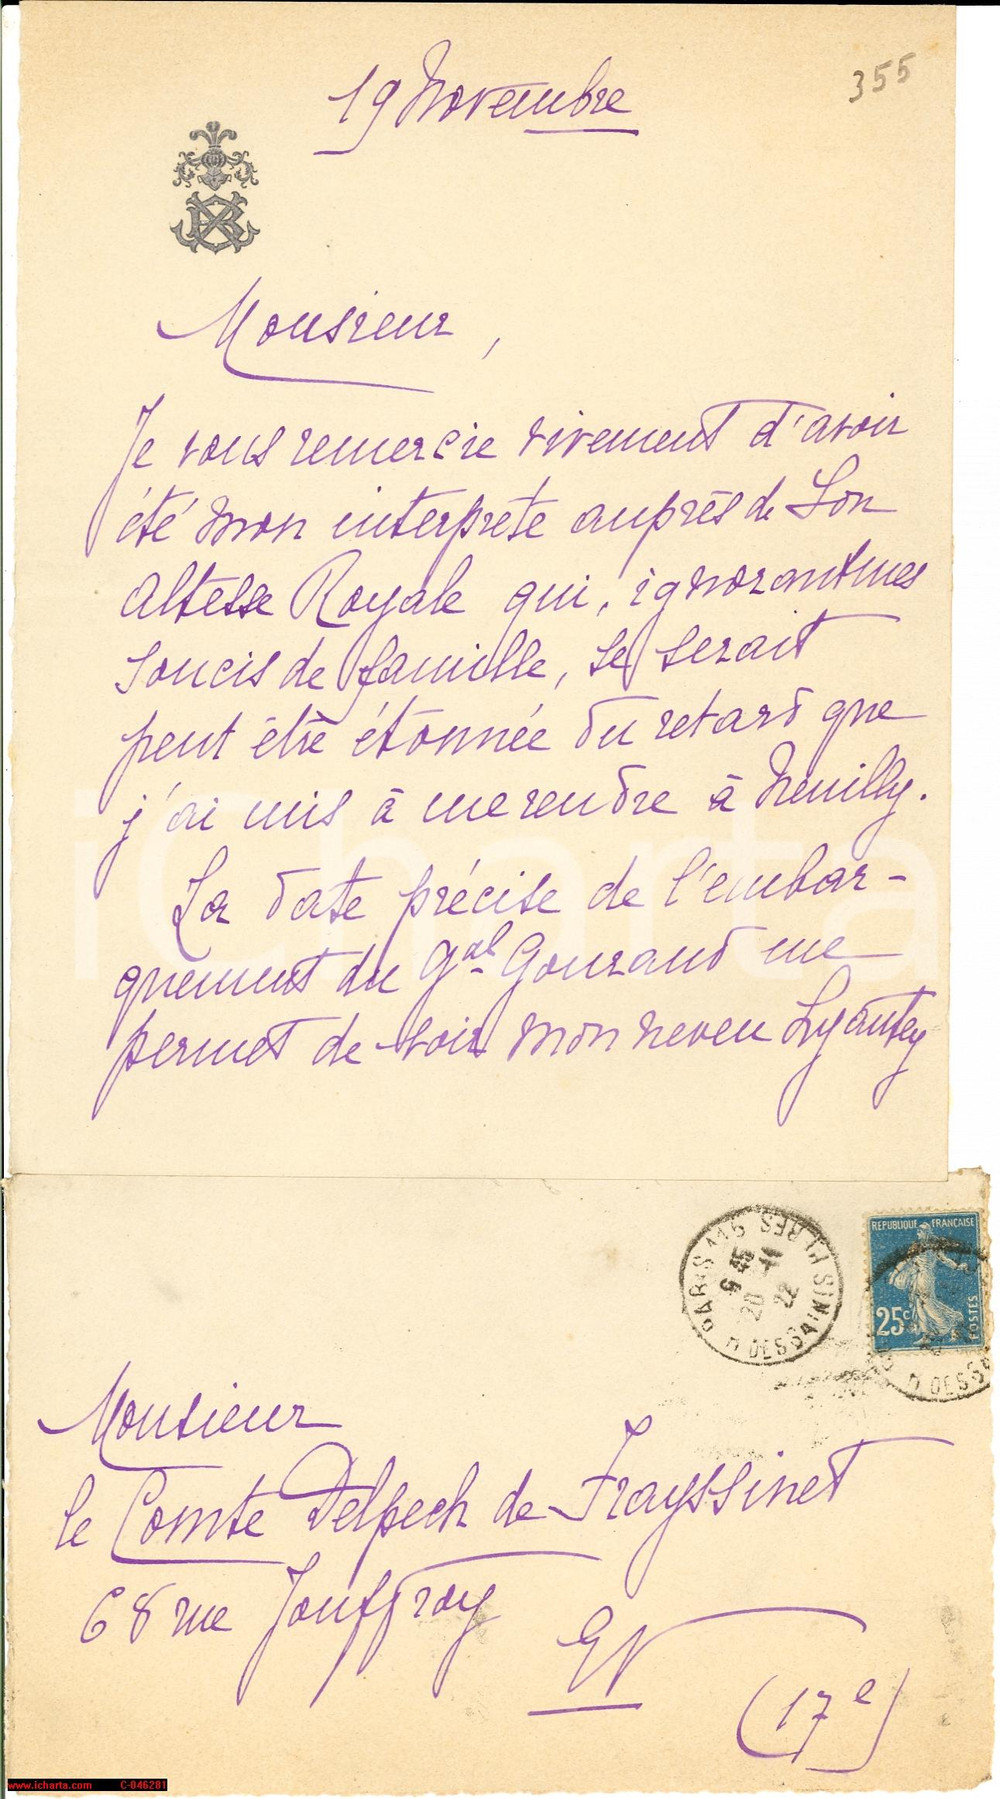 355
19 Novembre
Monsieur,
Je vous remercie vivement d'avoir
été mon interprète auprès de Son
Altesse Royale qui, ignorant mes
soucis de famille, se serait
peut être étonnée du retard que
j'ai mis à me rendre à Neuilly.
La date précise de l'embar-
quement du Gal Gouraud me
permet de voir mon neveu Lyautey
iCharta
PARIS 116 R DES SAINTS PERES
9 45
20 - 11
22
REPUBLIQUE FRANÇAISE
25c
POSTES
Monsieur
le Comte Delpech de Frayssinet
68 rue Jouffroy
EV
(17e)
www.icharta.com C-046281